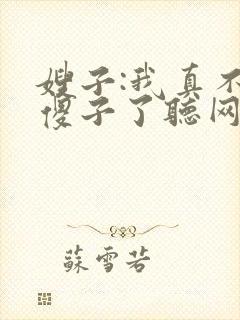 嫂子:我真不
傻子了聽网
蘇雪若